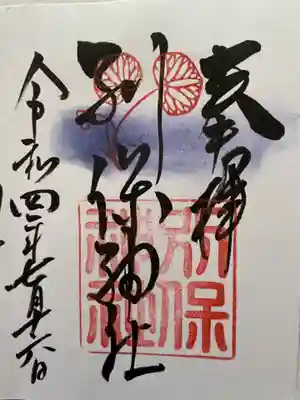 奉拝
別保神社
令和四年七月十六日
別保
神社